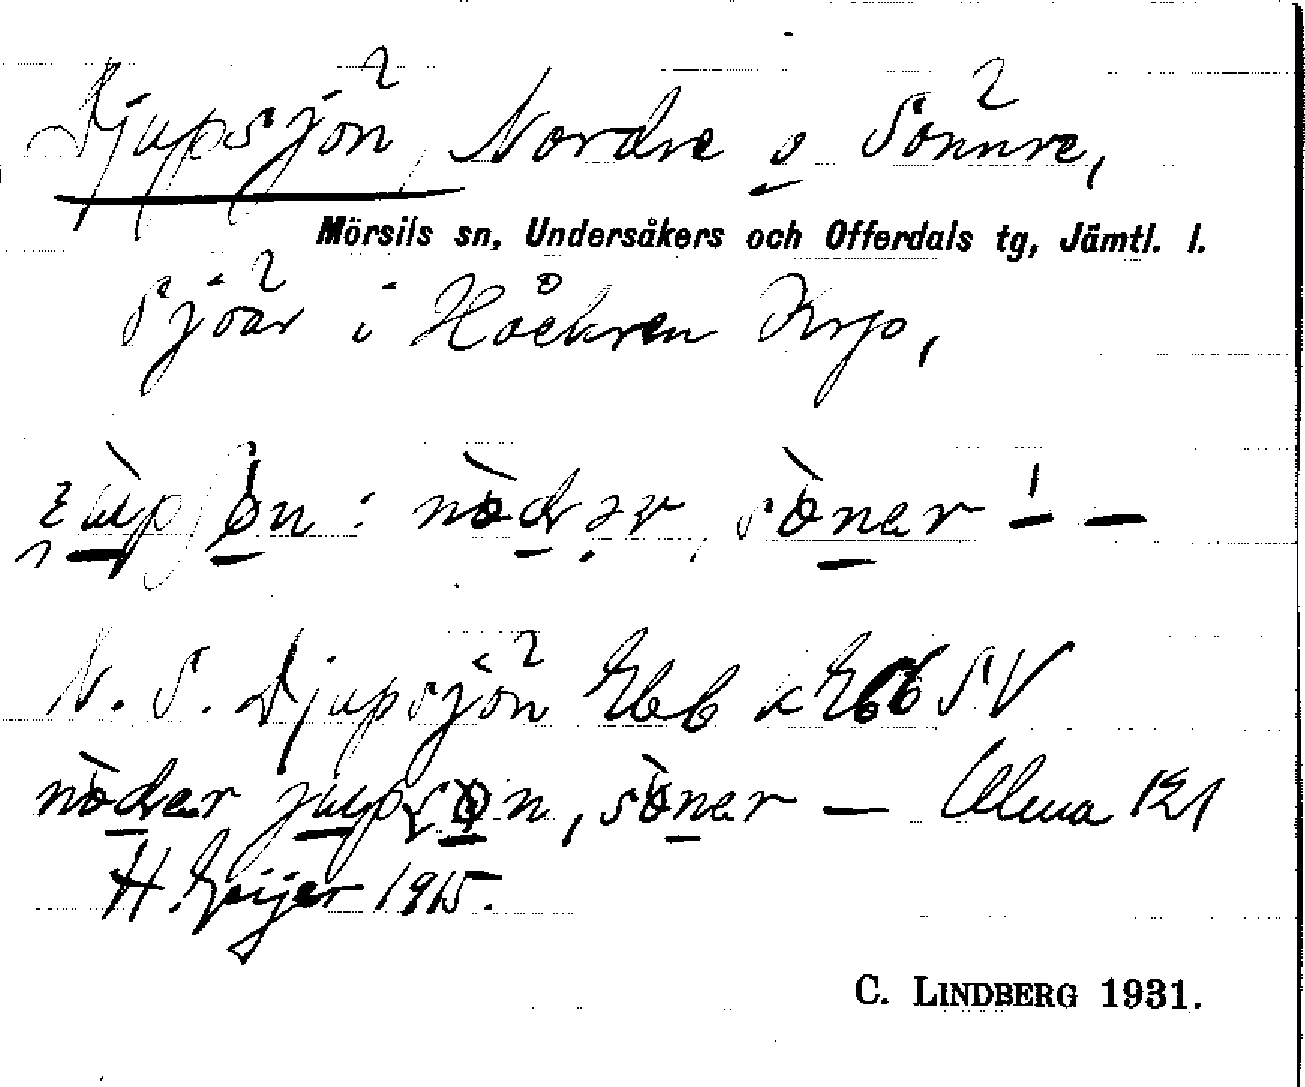 Djupsjön, Nordre o Sönnre,
Mörsils sn, Undersåkers och Offerdals tg, Jämtl. l.
Sjöar i Håckren Krp,
N. S. Djupsjön Ebb k Ebb SV
nòder jupsøn, sòner — Alma 121
H. Geijer 1915.
C. LINDBERG 1931.